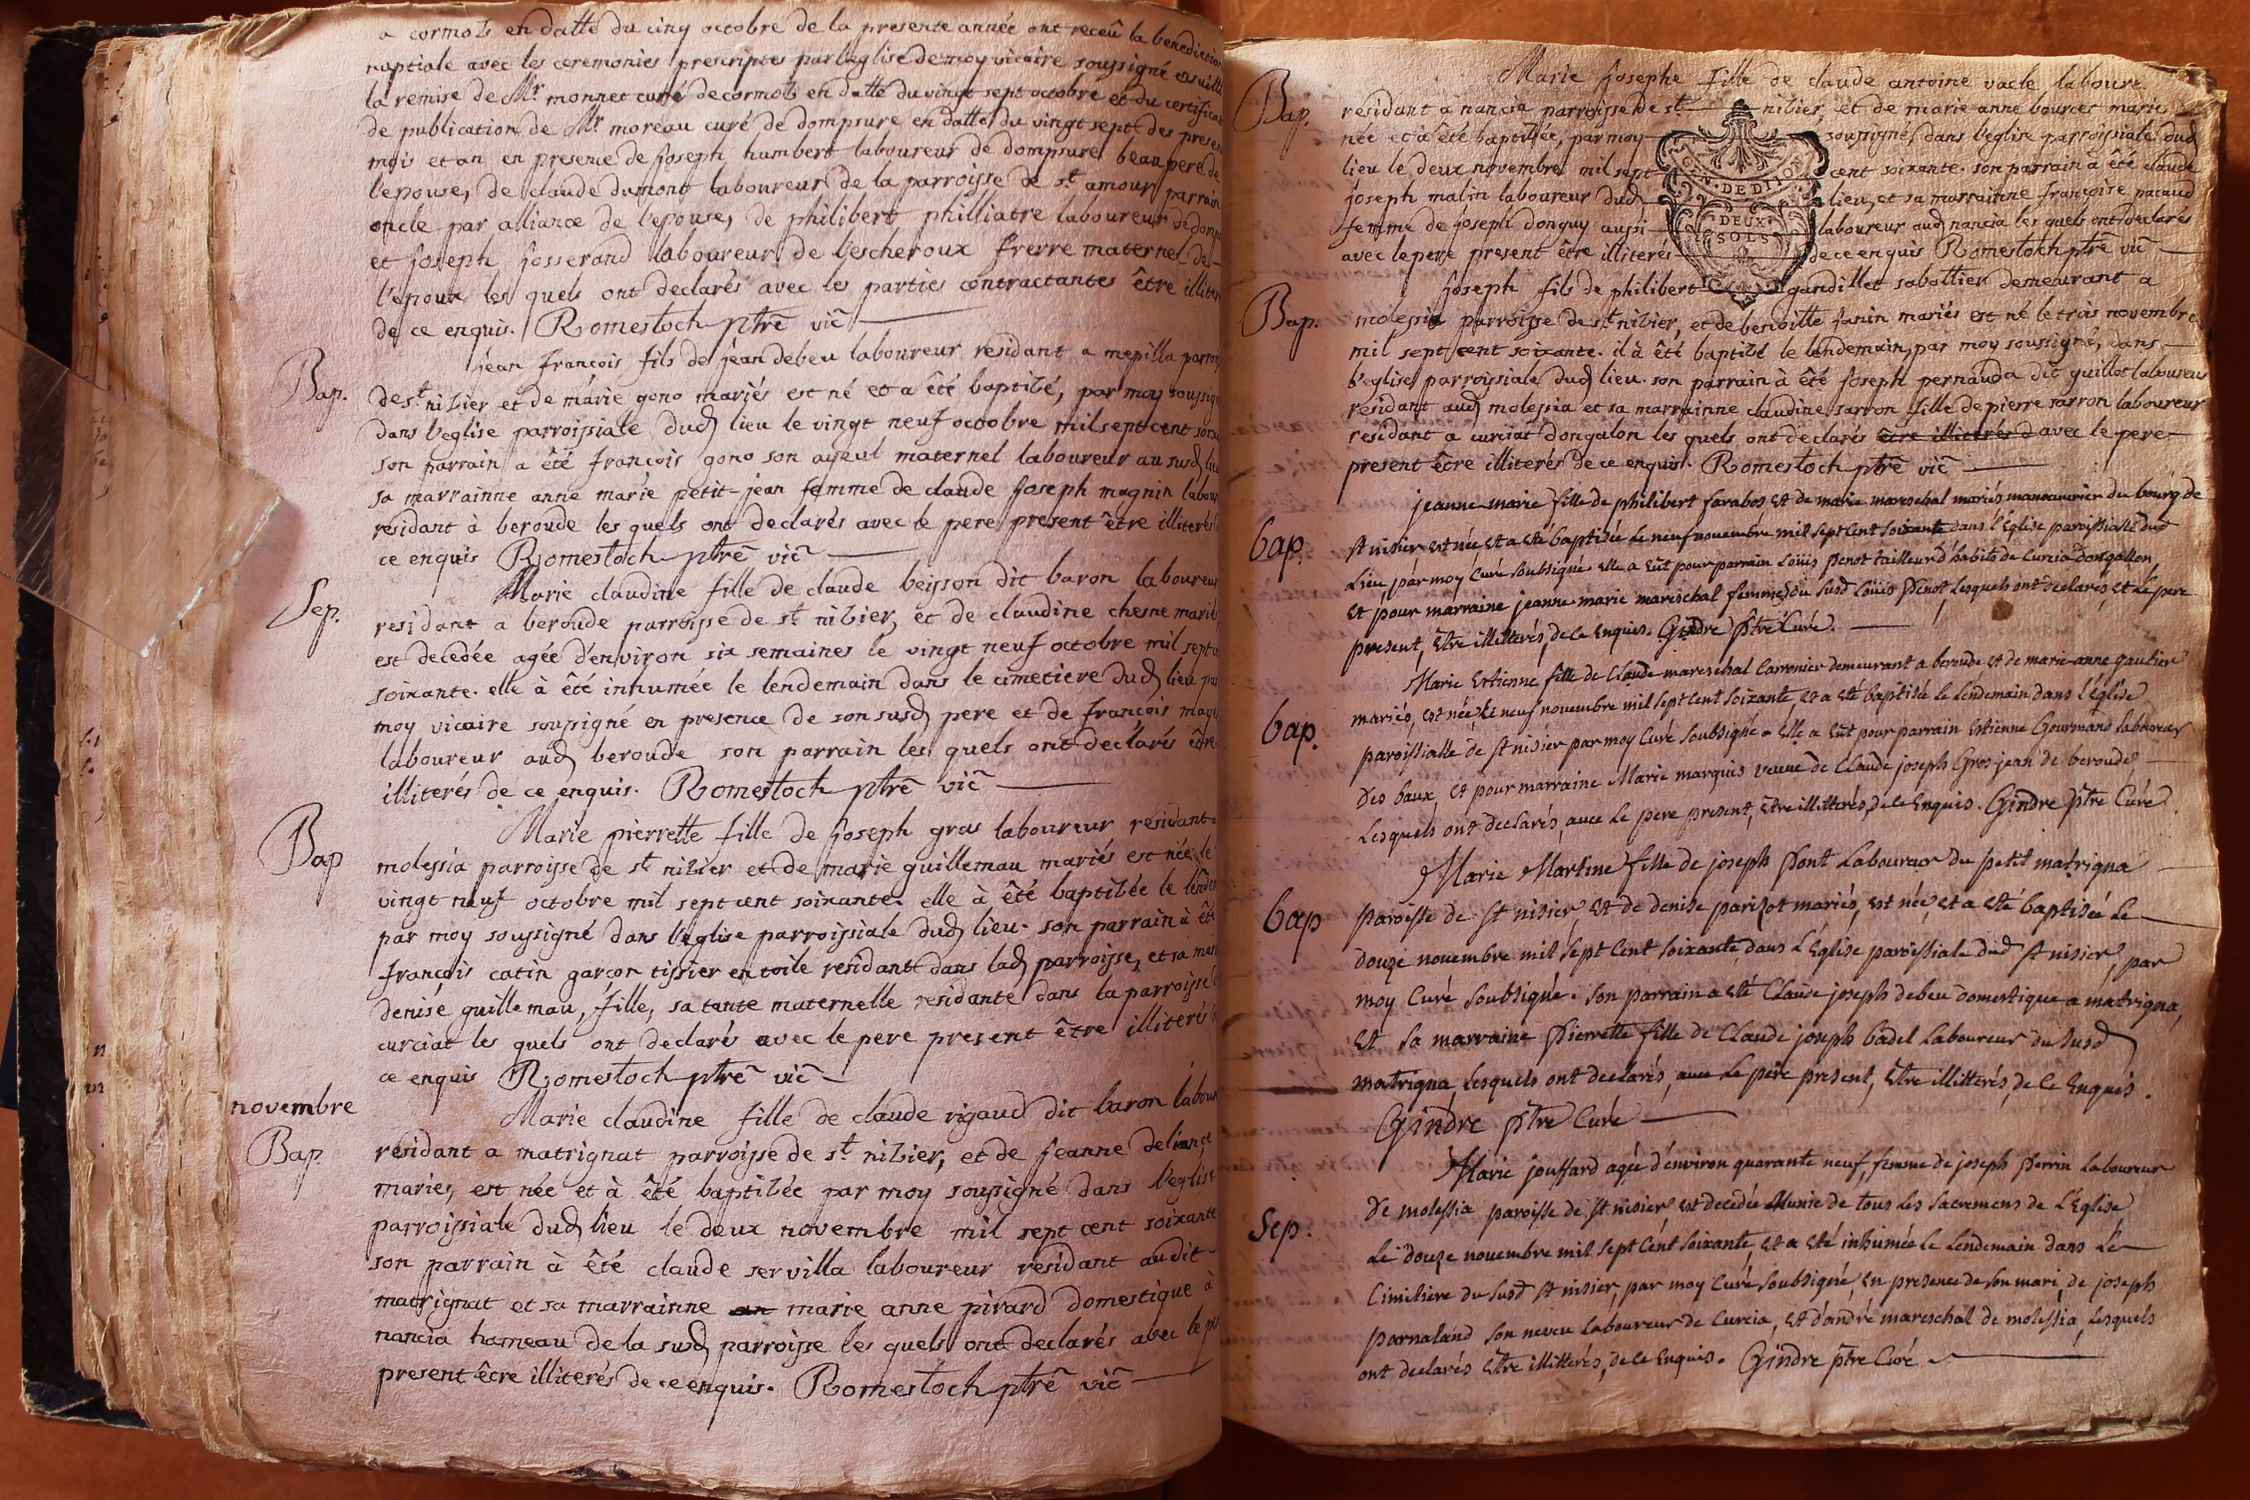 a cormoz en datte du cinq octobre de la presente année ont receû la benediction
nuptiale avec les ceremonies prescriptes par l'eglise de moy vicaire soussigné
la remise de Mr monnet curé de cormoz en datte du vingt sept octobre et du certificat
de publication de Mr moreau curé de dompsure en datte du vingt sept des presen
mois et an en presence de joseph humbert laboureur de dompsure beau pere de
l'epouse, de claude dumont laboureur de la parroisse de st amour parrain
oncle par alliance de l'epouse, de philibert philliatre laboureur de domp
et joseph josserand laboureur de l'escheroux frerre maternel de
l'epoux les quels ont declarés avec les parties contractantes être illiter
de ce enquis. Romestoch ptrē vic̄
Bap.
jean francois fils de jean debeu laboureur residant a mepilla parroi
de st nizier et de marie gono mariés est né et a été baptizé, par moy soussign
dans l'eglise parroissiale dud lieu le vingt neuf octobre mil sept cent soixa
son parrain a été francois gono son ayeul maternel laboureur au susd lieu
sa marrainne anne marie petit-jean femme de claude joseph magnin labour
residant à beroude les quels ont declarés avec le pere present être illiterés
ce enquis Romestoch ptrē vic̄
Sep.
Marie claudine fille de claude beisson dit baron laboureur
residant a beroude parroisse de st nizier, et de claudine chesne mariés
est decedée agée d'environ six semaines le vingt neuf octobre mil sept c
soixante. elle à été inhumée le lendemain dans le cimetiere dud lieu par
moy vicaire soussigné en presence de son susd pere et de francois
laboureur aud beroude son parrain les quels ont declarés être
illiterés de ce enquis. Romestoch ptrē vic̄
Bap
Marie pierrette fille de joseph gras laboureur residant
molessia parroisse de st nizier et de marie guillemau mariés est née le
vingt neuf octobre mil sept cent soixante. elle à été baptizée le lende
par moy soussigné dans l'eglise parroissiale dud lieu. son parrain à été
francois catin garçon tissier en toile residant dans lad parroisse, et sa mar
denise guillemau, fille, sa tante maternelle residante dans la parroisse
curciat les quels ont declaré avec le pere present être illiterés
ce enquis Romestoch ptrē vic̄
novembre
Bap.
Marie claudine fille de claude rigaud dit baron labour
residant a matrignat parroisse de st nizier, et de jeanne deliance
mariés, est née et à été baptizée par moy soussigné dans l'eglise
parroissiale dud lieu le deux novembre mil sept cent soixante
son parrain à été claude servilla laboureur residant audit
matrignat et sa marrainne marie anne pirard domestique à
nancia hameau de la susd parroisse les quels ont declarés avec le pe
present être illiterés de ce enquis. Romestoch ptrē vic̄
Bap.
Marie josephe fille de claude antoine vacle laboure
residant a nancia parroisse de st nizier, et de marie anne bourcet mariés
née et à été baptizée, par moy soussigné, dans l'eglise parroissiale dud
lieu le deux novembre mil sept cent soixante. son parrain à été claude
joseph malin laboureur dud lieu, et sa marrainne françoise pacaud
femme de joseph donguy aussi laboureur aud nancia les quels ont declarés
avec le pere present être illiterés de ce enquis Romestoch ptrē vic̄
GEN. DE DIJON
DEUX
SOLS
Bap.
joseph fils de philibert gandillet sabottier demeurant a
molessia parroisse de st nizier, et de benoitte janin mariés est né le trois novembre
mil sept cent soixante. il à été baptizé le lendemain, par moy soussigné, dans
l'eglise parroissiale dud lieu. son parrain à été joseph pernauda dit guillot laboureur
residant aud molessia et sa marrainne claudine sarron fille de pierre sarron laboureur
residant a curciat dongalon les quels ont declarés être illiterés avec le pere
present être illiterés de ce enquis. Romestoch ptrē vic̄
bap.
jeanne marie fille de philibert farabos et de marie mareschal mariés manoeuvrier du bourg de
st nisier est née, et a eté baptisée le neuf novembre mil sept cent soixante dans l'eglise paroissialle dud
lieu par moy curé soubsigné. elle a eût pour parrain Loüis Penot tailleur d'habits de curcia dongallon
et pour marraine jeanne marie mareschal femme du susd Loüis Penot, lesquels ont declarés, et le pere
present, etre illitterés, de ce enquis. Gindre ptre Curé.
bap.
Marie Estienne fille de Claude mareschal carronier demeurant a beroude et de marie anne gautier
mariés, est née le neuf novembre mil sept cent soixante, et a eté baptisée le lendemain dans l'eglise
paroissialle de st nisier par moy Curé soubsigné. elle a eût pour parrain Estienne Gourmand laboureur
des baux, et pour marraine Marie marquis veuve de Claude joseph Gros-jean de beroude
lesquels ont declarés, avec le pere present, etre illitterés, de ce enquis. Gindre ptre Curé.
bap
Marie Martine fille de joseph Pont laboureur du petit matrigna
paroisse de st nisier et de denise parizot mariés, est née, et a eté baptisée le
douze novembre mil sept cent soixante dans l'Eglise paroissiale dud st nisier, par
moy Curé soubsigné. son parrain a eté Claude joseph debeu domestique a matrigna,
et sa marraine Pierrette fille de Claude joseph badel laboureur du susd
matrigna, lesquels ont declarés, avec le pere present, etre illitterés, de ce enquis.
Gindre ptre Curé
Sep.
Marie jouffard agée d'environ quarante neuf, femme de joseph Perrin laboureur
de molessia paroisse de st nisier, est decedée Munie de tous les sacremens de l'Eglise
le douze novembre mil sept cent soixante, et a eté inhumée le lendemain dans le
Cimitiere du susd st nisier, par moy Curé soubsigné, en presence de son mari, de joseph
parnaland son neveu laboureur de Curcia, et d'andré mareschal de molessia, lesquels
ont declarés etre illitterés, de ce enquis. Gindre ptre Curé